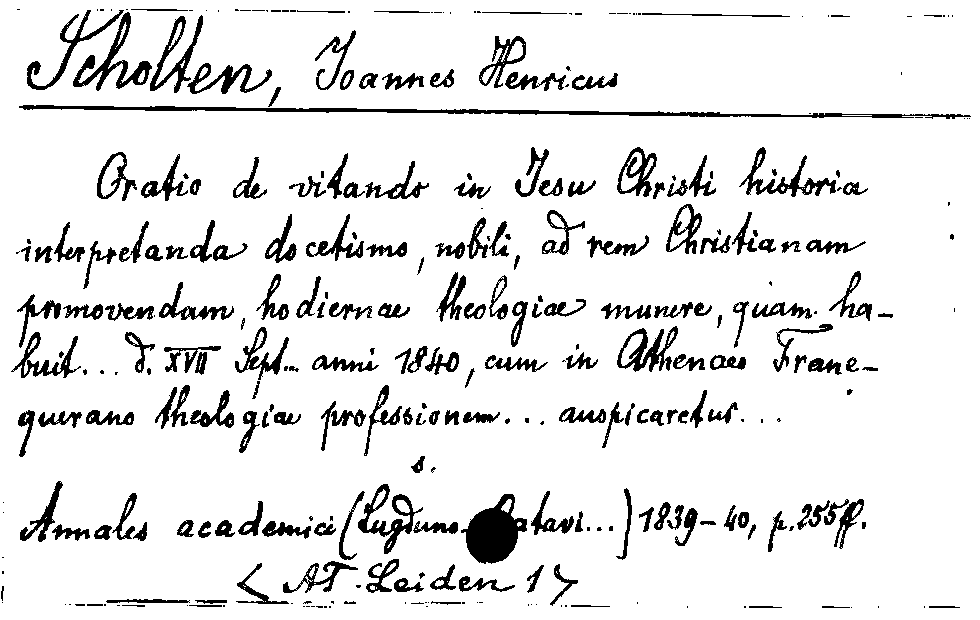 Scholten, Joannes Henricus
Oratio de vitando in Jesu Christi historia
interpretanda docetismo, nobili, ad rem Christianam
promovendam, hodiernae theologiae munere, quam ha-
buit... d. XVII Sept... anni 1840, cum in Athenaeo Frane-
querano theologiae professionem... auspicaretur...
s.
Annales academici (Lugduno-Batavi...) 1839-40, p. 255ff.
< AT Leiden 1 >